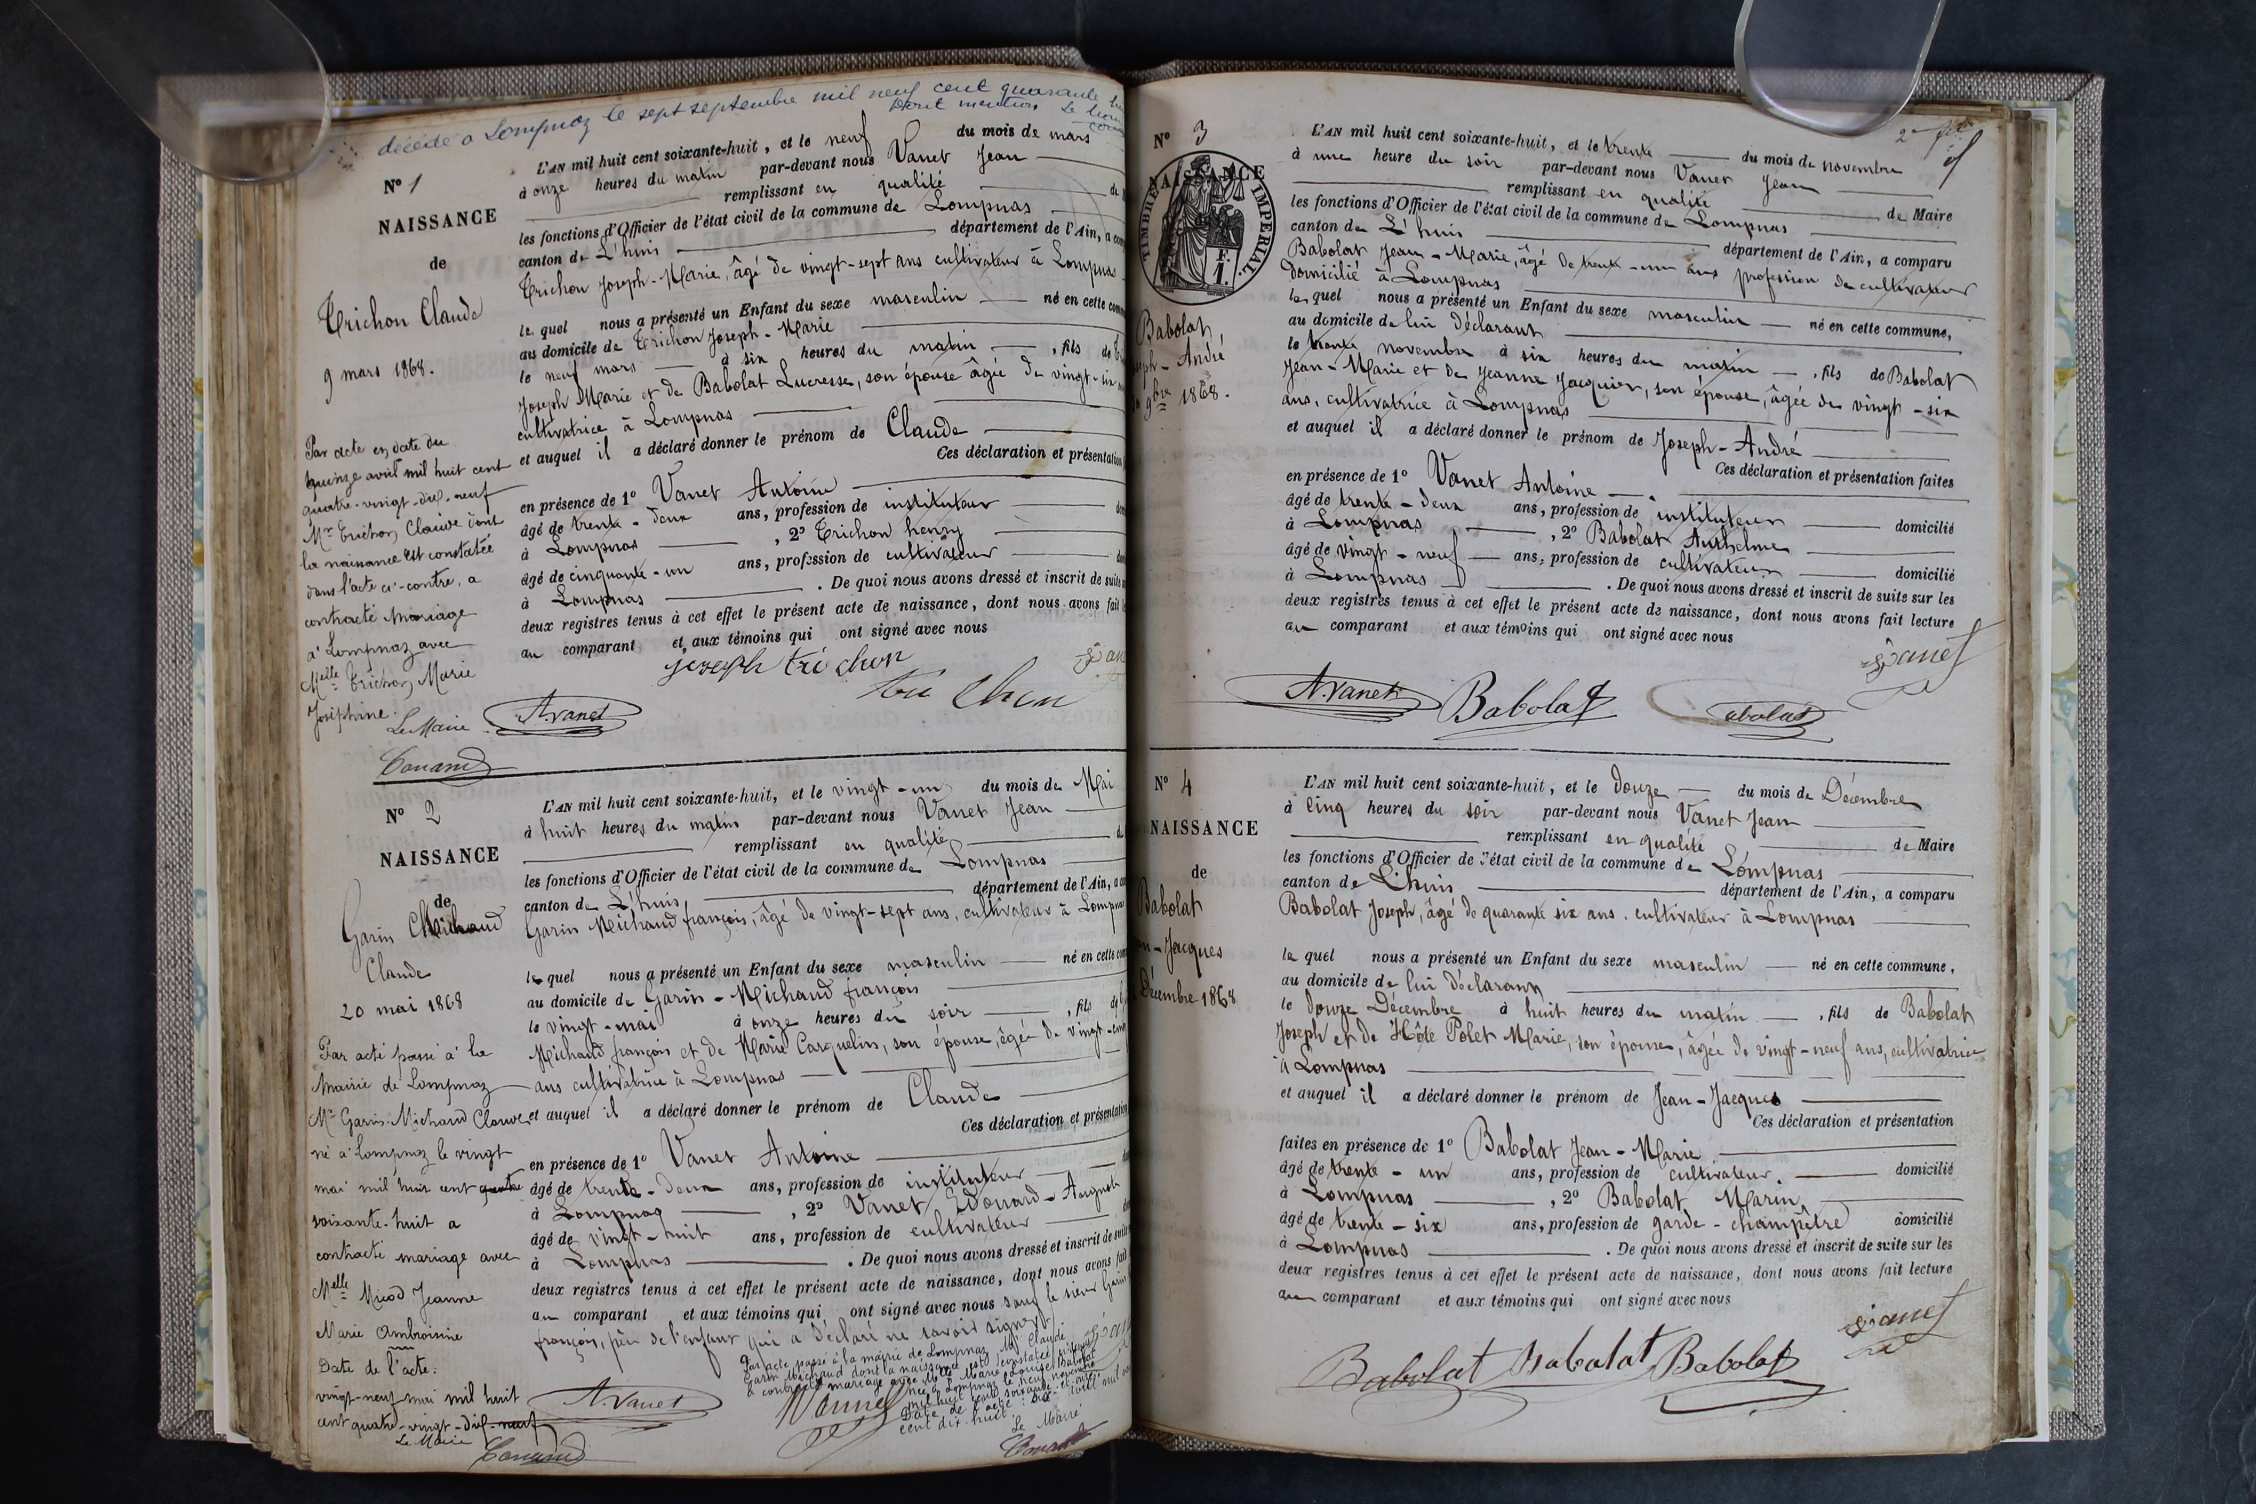 décédé à Lompnaz le sept septembre mil neuf cent quarante
Dont mention Le
N° 1
NAISSANCE
de
Trichon Claude
9 mars 1868.
Par acte en date du
quinze avril mil huit cent
quatre-vingt-dix-neuf
Mr Trichon Claude dont
la naissance est constatée
dans l'acte ci-contre, a
contracté mariage
à Lompnaz avec
Melle Trichon Marie
Joséphine.
Le Maire
L'AN mil huit cent soixante-huit, et le neuf du mois de mars
à onze heures du matin par-devant nous Vanet Jean
remplissant en qualité
les fonctions d'Officier de l'état civil de la commune de Lompnas
canton de L'huis département de l'Ain, a
Trichon Joseph-Marie, âgé de vingt-sept ans cultivateur à Lompnas
lequel nous a présenté un Enfant du sexe masculin né en cette
au domicile de Trichon Joseph-Marie
le neuf mars à six heures du matin, fils de
Joseph Marie et de Babolat Lucresse, son épouse âgée de vingt-six
cultivatrice à Lompnas
et auquel il a déclaré donner le prénom de Claude
Ces déclaration et présentation
en présence de 1° Vanet Antoine
âgé de trente-deux ans, profession de instituteur
à Lompnas, 2° Trichon henry
âgé de cinquante-un ans, profession de cultivateur
à Lompnas. De quoi nous avons dressé et inscrit de suite
deux registres tenus à cet effet le présent acte de naissance, dont nous avons fait
au comparant et aux témoins qui ont signé avec nous
joseph trichon
tri chon
A. Vanet
N° 2
NAISSANCE
de
Garin Michaud
Claude
20 mai 1868
Par acte passé à la
Mairie de Lompnaz
Mr Garin-Michaud Claude
né à Lompnaz le vingt
mai mil huit cent quatre
soixante-huit a
contracté mariage avec
Melle Micod Jeanne
Marie Ambroisine
Date de l'acte:
vingt-neuf mai mil huit
cent quatre-vingt-dix-neuf
Le Maire
L'AN mil huit cent soixante-huit, et le vingt-un du mois de Mai
à huit heures du matin par-devant nous Vanet Jean
remplissant en qualité
les fonctions d'Officier de l'état civil de la commune de Lompnas
canton de L'huis département de l'Ain, a
Garin Michaud françois, âgé de vingt-sept ans, cultivateur à Lompnas
lequel nous a présenté un Enfant du sexe masculin né en cette
au domicile de Garin-Michaud françois
le vingt-mai à onze heures du soir, fils de
Michaud françois et de Marie Carquelin, son épouse, âgée de vingt-
ans cultivatrice à Lompnas
et auquel il a déclaré donner le prénom de Claude
Ces déclaration et présentation
en présence de 1° Vanet Antoine
âgé de trente-deux ans, profession de instituteur
à Lompnas, 2° Vanet Edouard-Auguste
âgé de vingt-huit ans, profession de cultivateur
à Lompnas. De quoi nous avons dressé et inscrit de suite
deux registres tenus à cet effet le présent acte de naissance, dont nous avons fait
au comparant et aux témoins qui ont signé avec nous sauf le sieur Garin
françois, père de l'enfant qui a déclaré ne savoir signer
Par acte passé à la mairie de Lompnaz Mr Claude
Garin Michaud dont la naissance est constatée
a contracté mariage avec Melle Marie Louise Babolat
née à Lompnaz le neuf novembre
mil huit cent soixante
Date de l'acte: Dix août mil neuf
cent dix-huit.
Le Maire
A. Vanet
2e
N° 3
NAISSANCE
TIMBRE IMPERIAL.
F. 1.
Babolat
Joseph-André
9bre 1868.
L'AN mil huit cent soixante-huit, et le trente du mois de novembre
à une heure du soir par-devant nous Vanet Jean
remplissant en qualité de Maire
les fonctions d'Officier de l'état civil de la commune de Lompnas
canton de L'huis département de l'Ain, a comparu
Babolat Jean-Marie, âgé de trente-un ans profession de cultivateur
domicilié à Lompnas
lequel nous a présenté un Enfant du sexe masculin né en cette commune,
au domicile de lui déclarant
le trente novembre à six heures du matin, fils de Babolat
Jean-Marie et de Jeanne Jacquier, son épouse, âgée de vingt-six
ans, cultivatrice à Lompnas
et auquel il a déclaré donner le prénom de Joseph-André
Ces déclaration et présentation faites
en présence de 1° Vanet Antoine
âgé de trente-deux ans, profession de instituteur domicilié
à Lompnas, 2° Babolat Anthelme
âgé de vingt-neuf ans, profession de cultivateur domicilié
à Lompnas. De quoi nous avons dressé et inscrit de suite sur les
deux registres tenus à cet effet le présent acte de naissance, dont nous avons fait lecture
au comparant et aux témoins qui ont signé avec nous
Vanet
A. Vanet Babolat Babolat
N° 4
NAISSANCE
de
Babolat
Jean-Jacques
Décembre 1868
L'AN mil huit cent soixante-huit, et le douze du mois de Décembre
à cinq heures du soir par-devant nous Vanet Jean
remplissant en qualité de Maire
les fonctions d'Officier de l'état civil de la commune de Lompnas
canton de L'huis département de l'Ain, a comparu
Babolat Joseph, âgé de quarante six ans. cultivateur à Lompnas
lequel nous a présenté un Enfant du sexe masculin né en cette commune,
au domicile de lui déclarant
le douze Décembre à huit heures du matin, fils de Babolat
Joseph et de Hôte Polet Marie, son épouse, âgée de vingt-neuf ans, cultivatrice
à Lompnas
et auquel il a déclaré donner le prénom de Jean-Jacques
Ces déclaration et présentation
faites en présence de 1° Babolat Jean-Marie
âgé de trente-un ans, profession de cultivateur. domicilié
à Lompnas, 2° Babolat Marin
âgé de trente-six ans, profession de garde-champêtre domicilié
à Lompnas. De quoi nous avons dressé et inscrit de suite sur les
deux registres tenus à cet effet le présent acte de naissance, dont nous avons fait lecture
au comparant et aux témoins qui ont signé avec nous
Vanet
Babolat Babolat Babolat